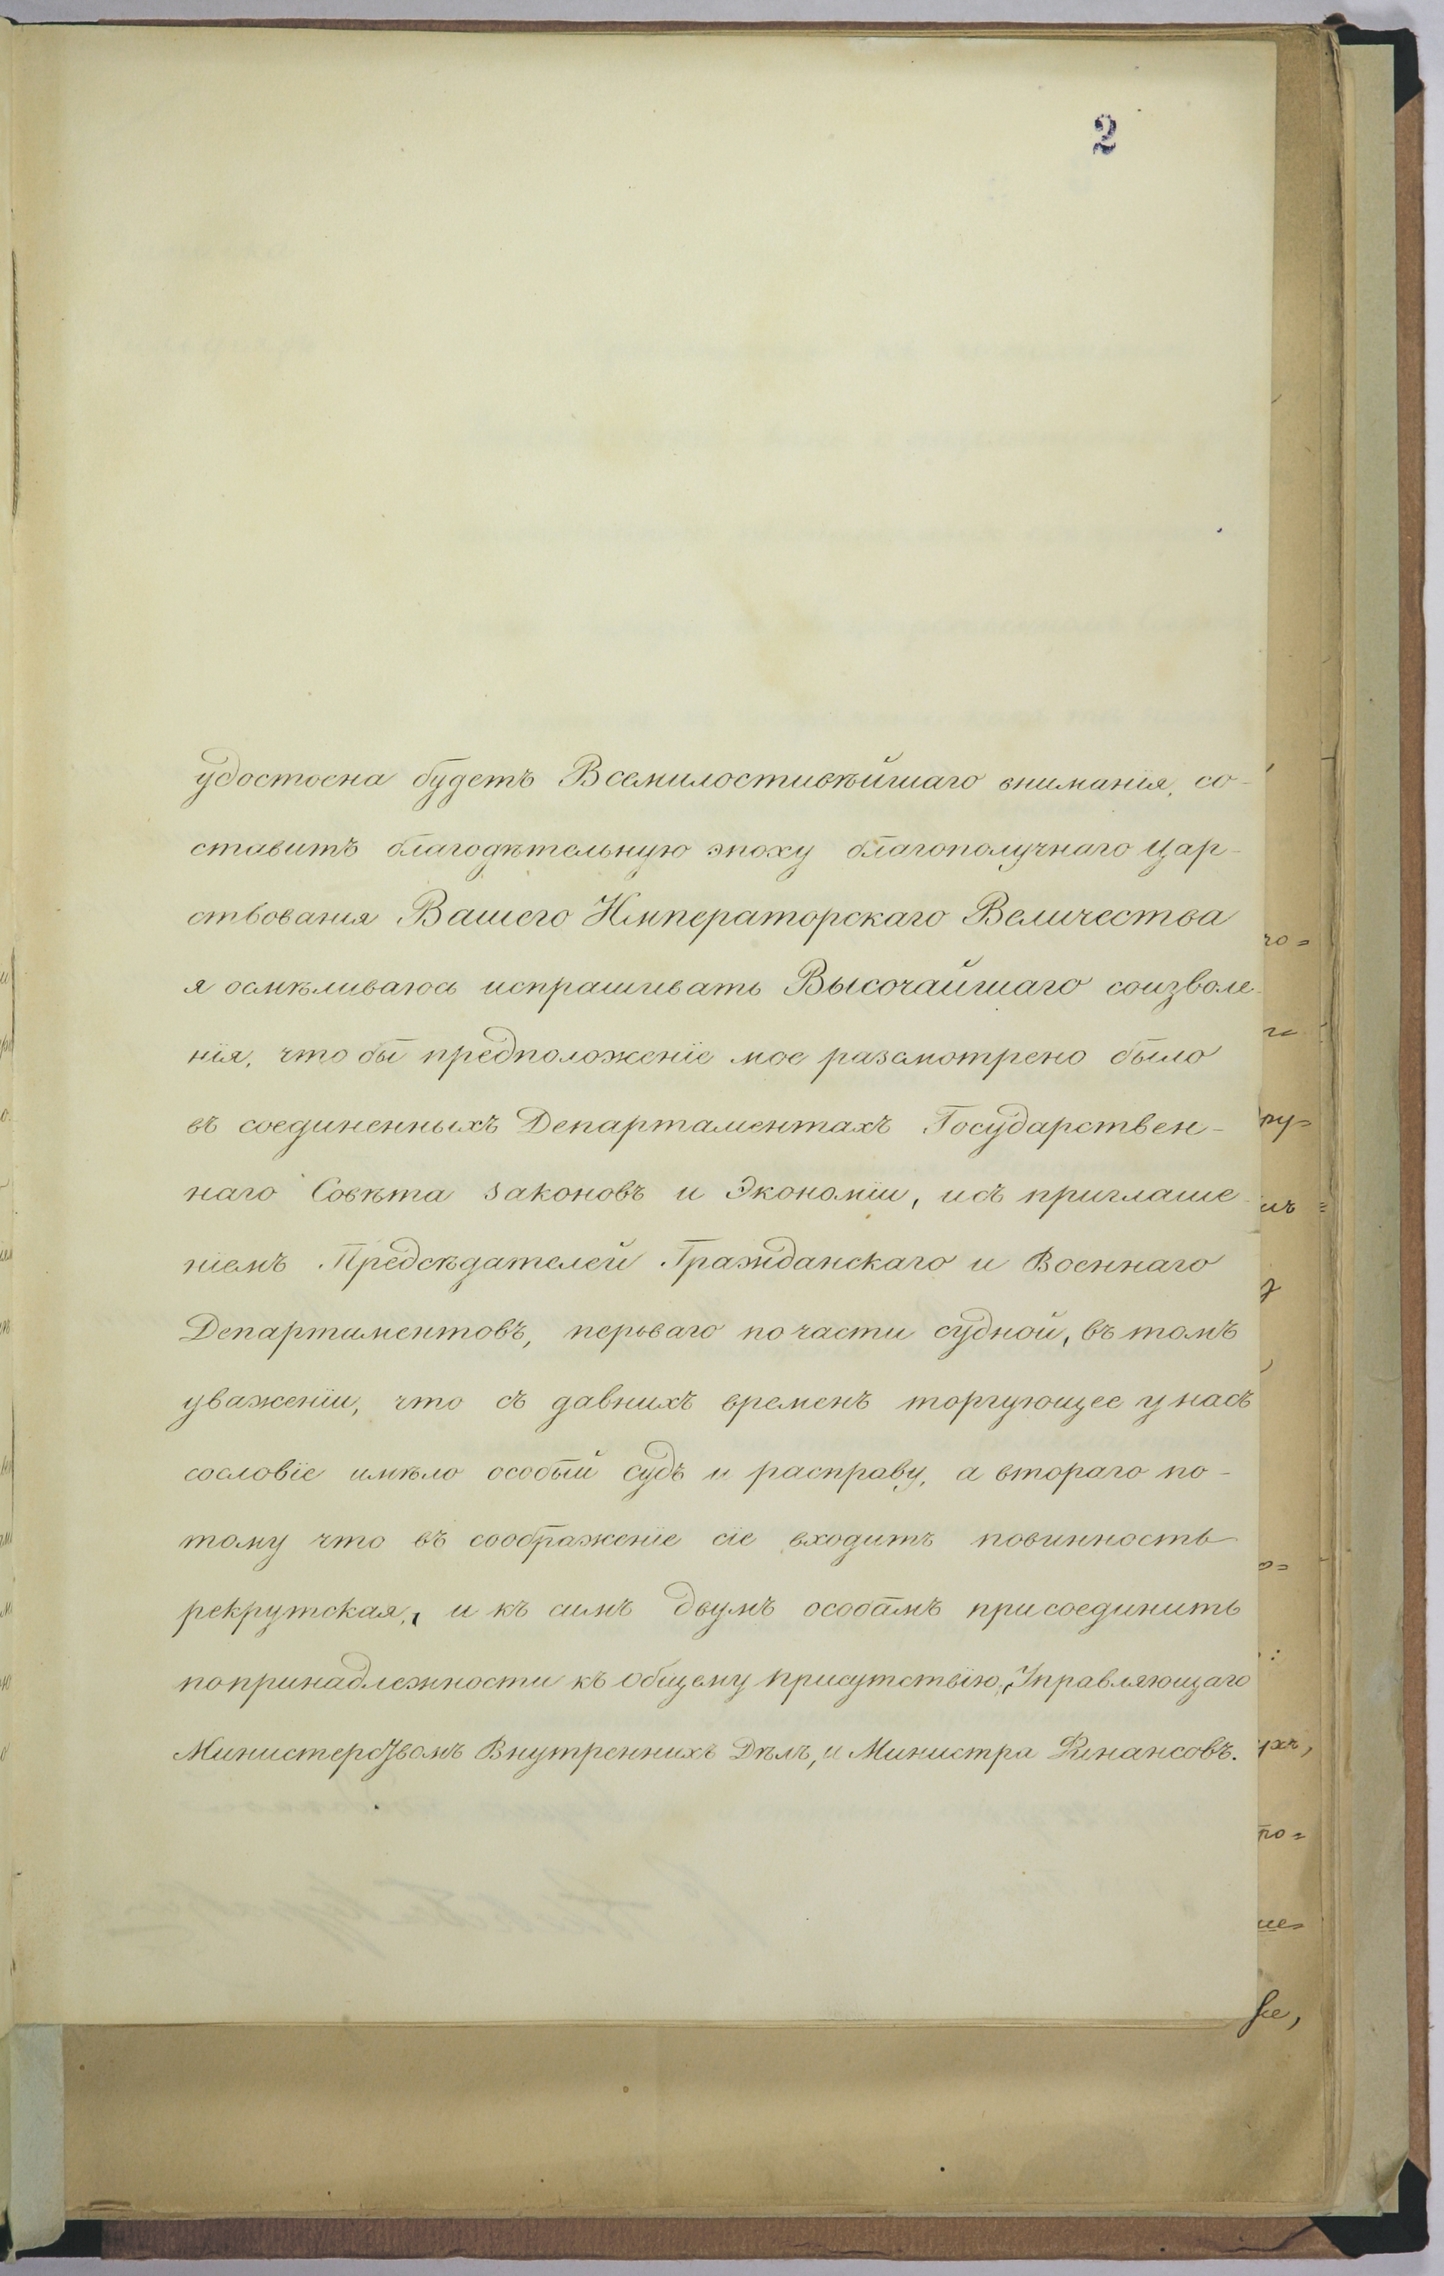 2
удостоена будетъ Всемилостивѣйшаго вниманія, со-
ставитъ благодѣтельную эпоху благополучнаго Цар-
ствованія Вашего Императорскаго Величества
я осмѣливаюсь испрашивать Высочайшаго соизволе-
нія, что бы предположеніе мое разсмотрено было
въ соединенныхъ Департаментахъ Государствен-
наго Совѣта Законовъ и Экономіи, и съ приглаше-
ніемъ Предсѣдателей Гражданскаго и Военнаго
Департаментовъ, перьваго по части судной, въ томъ
уваженіи, что съ давнихъ временъ торгующее у насъ
сословіе имѣло особый судъ и расправу, а втораго по-
тому что въ соображеніе сіе входитъ повинность
рекрутская, и къ симъ двумъ особамъ присоединить
по принадлежности къ общему присутствію, Управляющаго
Министерствомъ Внутреннихъ Дѣлъ, и Министра Финансовъ.